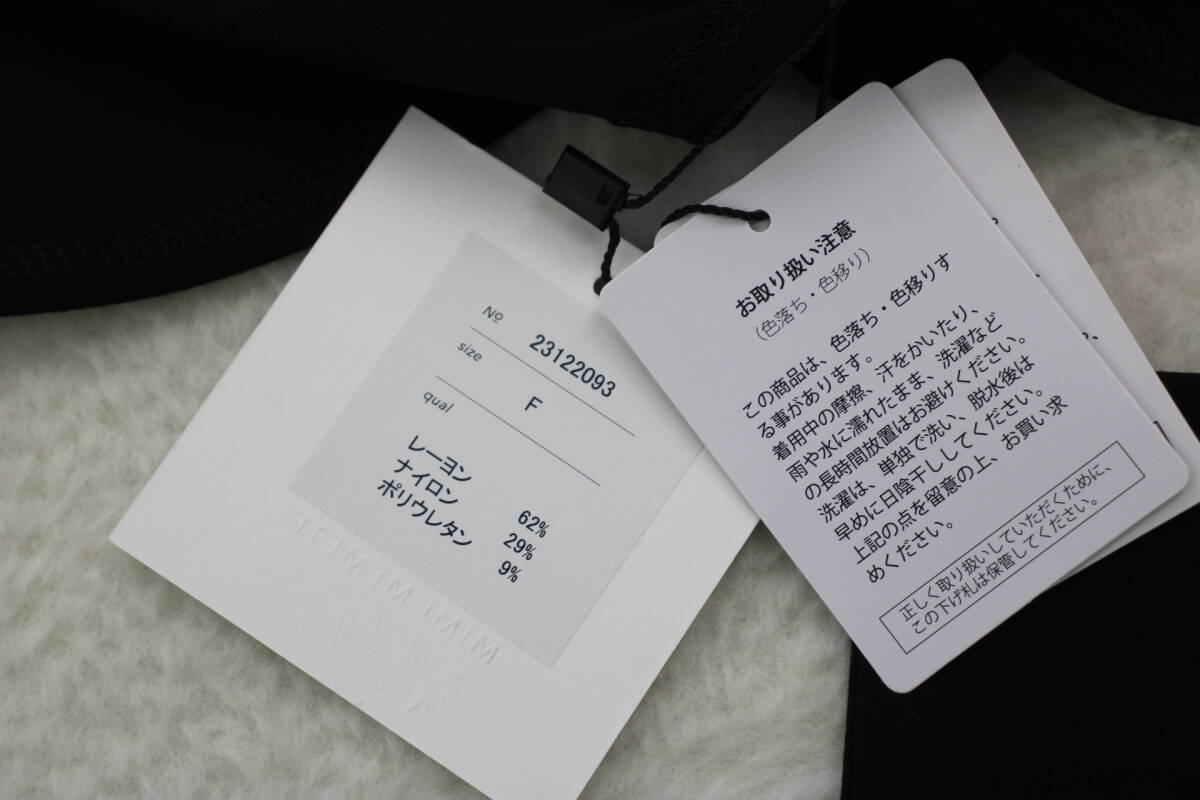 Nº 23122093
size F
qual
レーヨン 62%
ナイロン 29%
ポリウレタン 9%
MIMI MEMETE
お取り扱い注意
(色落ち・色移り)
この商品は、色落ち・色移りす
る事があります。
着用中の摩擦、汗をかいたり、
雨や水に濡れたまま、洗濯など
の長時間放置はお避けください。
洗濯は、単独で洗い、脱水後は
早めに日陰干ししてください。
上記の点を留意の上、お買い求
めください。
正しく取り扱いしていただくために、
この下げ札は保管してください。